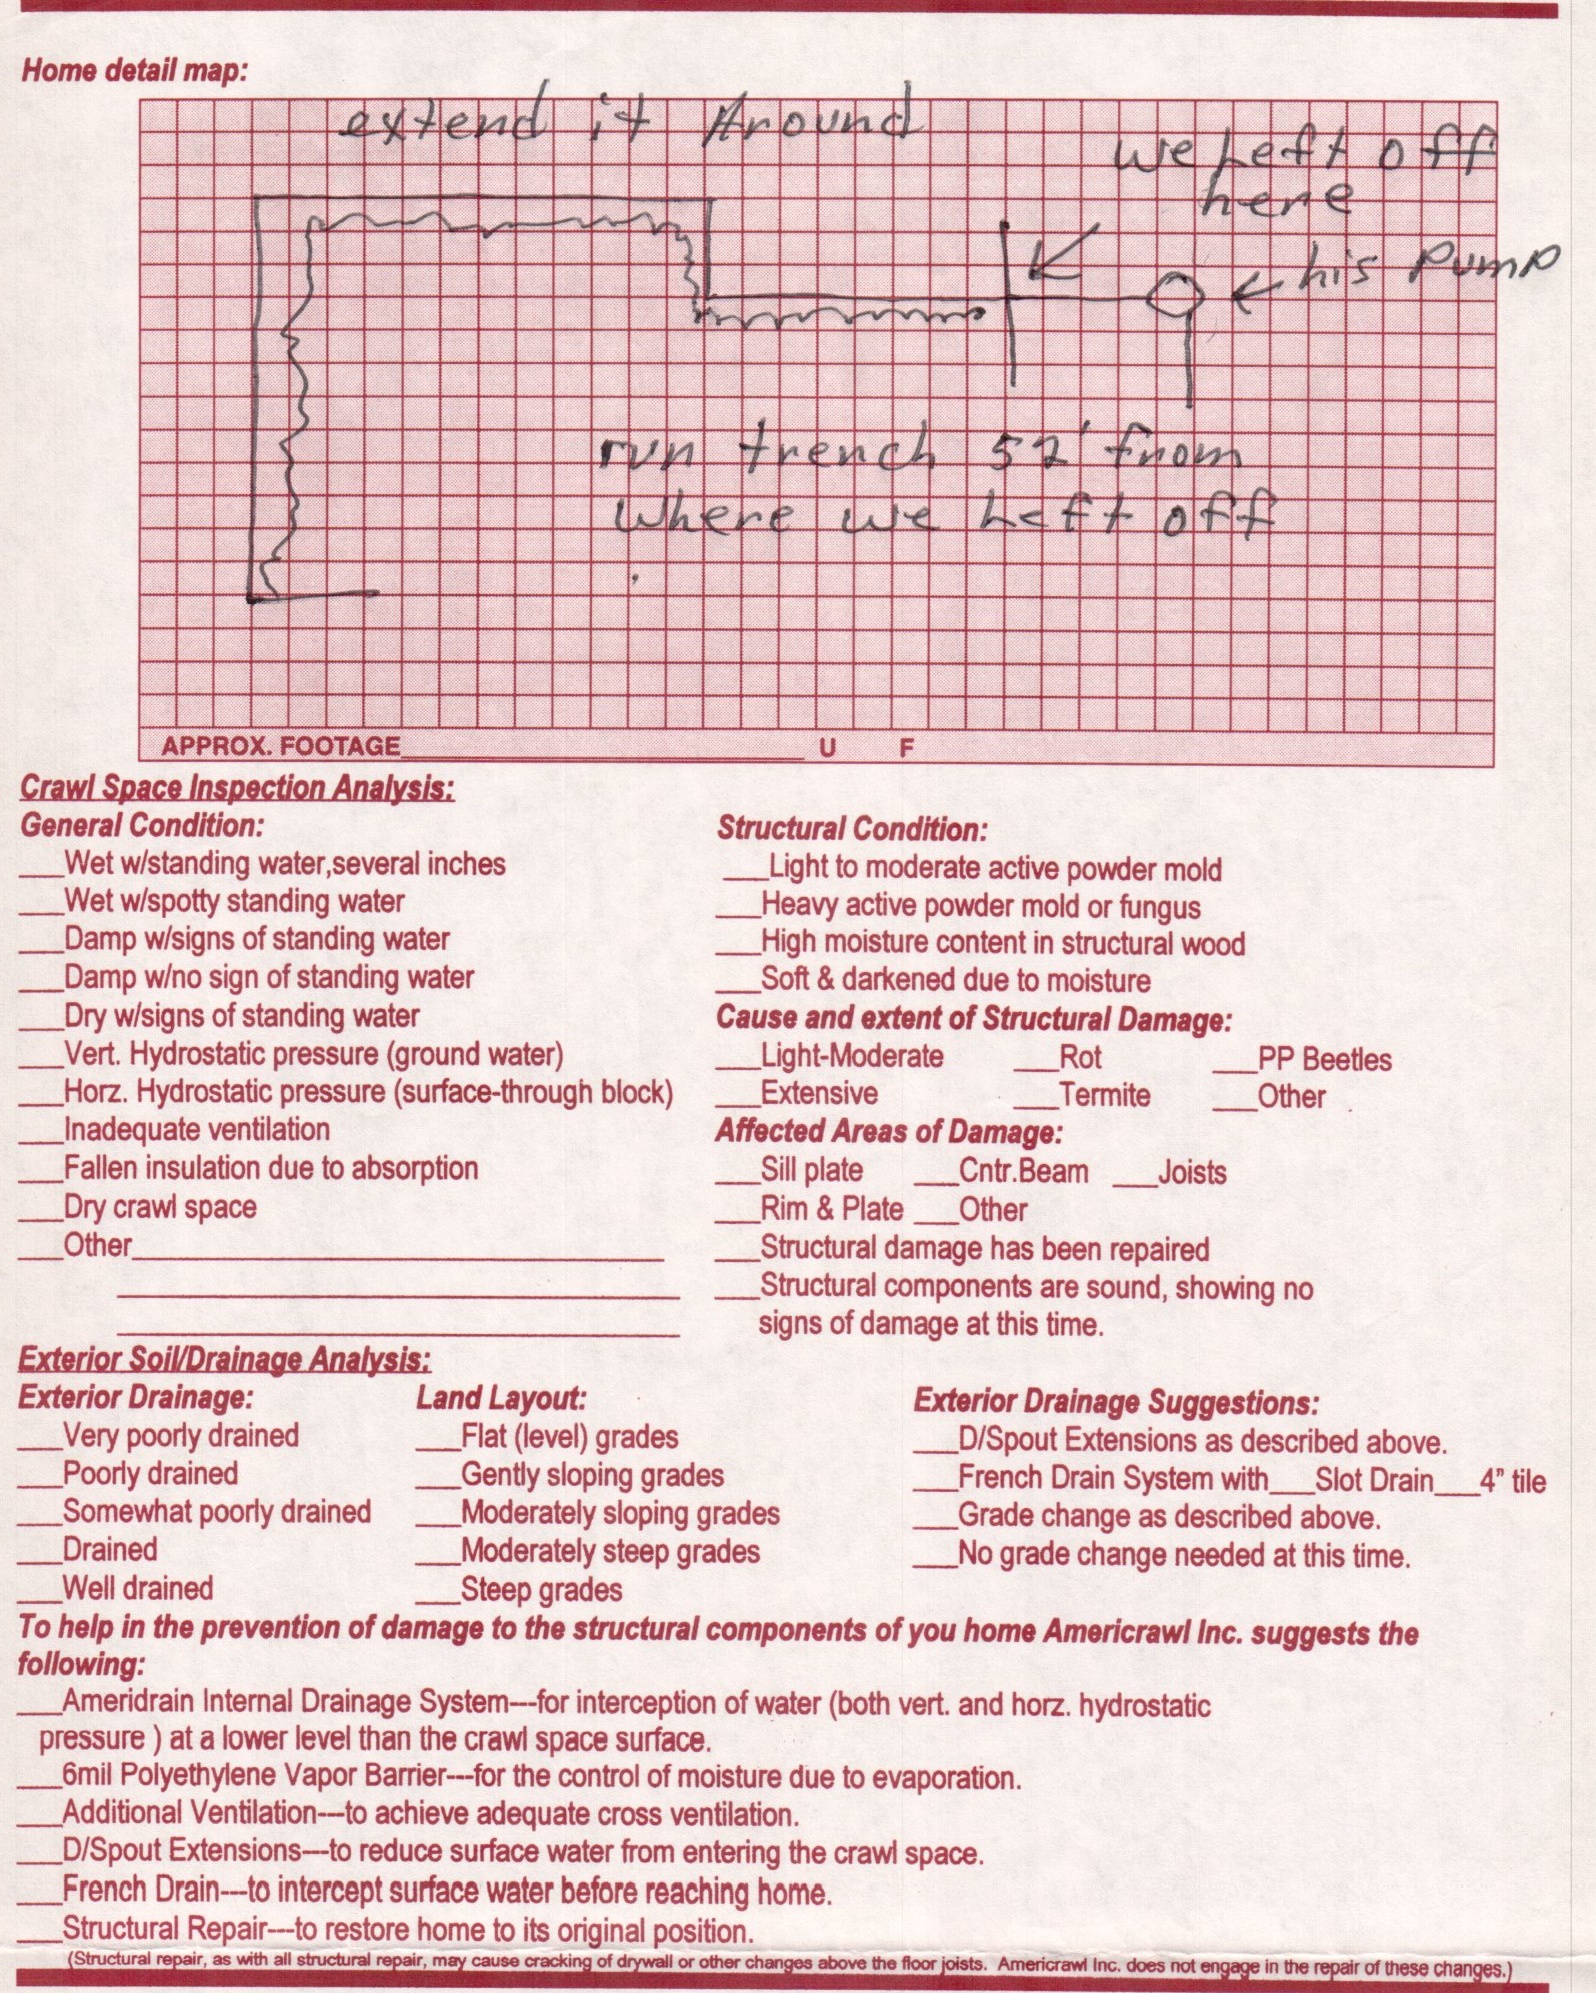 Home detail map:
extend it Around
we Left off
here
his Pump
run trench 52' from
where we Left off
APPROX. FOOTAGE____ U F
Crawl Space Inspection Analysis:
General Condition:
___Wet w/standing water,several inches
___Wet w/spotty standing water
___Damp w/signs of standing water
___Damp w/no sign of standing water
___Dry w/signs of standing water
___Vert. Hydrostatic pressure (ground water)
___Horz. Hydrostatic pressure (surface-through block)
___Inadequate ventilation
___Fallen insulation due to absorption
___Dry crawl space
___Other____
Structural Condition:
___Light to moderate active powder mold
___Heavy active powder mold or fungus
___High moisture content in structural wood
___Soft & darkened due to moisture
Cause and extent of Structural Damage:
___Light-Moderate ___Rot ___PP Beetles
___Extensive ___Termite ___Other
Affected Areas of Damage:
___Sill plate ___Cntr.Beam ___Joists
___Rim & Plate ___Other
___Structural damage has been repaired
___Structural components are sound, showing no
signs of damage at this time.
Exterior Soil/Drainage Analysis:
Exterior Drainage:
___Very poorly drained
___Poorly drained
___Somewhat poorly drained
___Drained
___Well drained
Land Layout:
___Flat (level) grades
___Gently sloping grades
___Moderately sloping grades
___Moderately steep grades
___Steep grades
Exterior Drainage Suggestions:
___D/Spout Extensions as described above.
___French Drain System with___Slot Drain___4" tile
___Grade change as described above.
___No grade change needed at this time.
To help in the prevention of damage to the structural components of you home Americrawl Inc. suggests the
following:
___Ameridrain Internal Drainage System---for interception of water (both vert. and horz. hydrostatic
pressure ) at a lower level than the crawl space surface.
___6mil Polyethylene Vapor Barrier---for the control of moisture due to evaporation.
___Additional Ventilation---to achieve adequate cross ventilation.
___D/Spout Extensions---to reduce surface water from entering the crawl space.
___French Drain---to intercept surface water before reaching home.
___Structural Repair---to restore home to its original position.
(Structural repair, as with all structural repair, may cause cracking of drywall or other changes above the floor joists. Americrawl Inc. does not engage in the repair of these changes.)